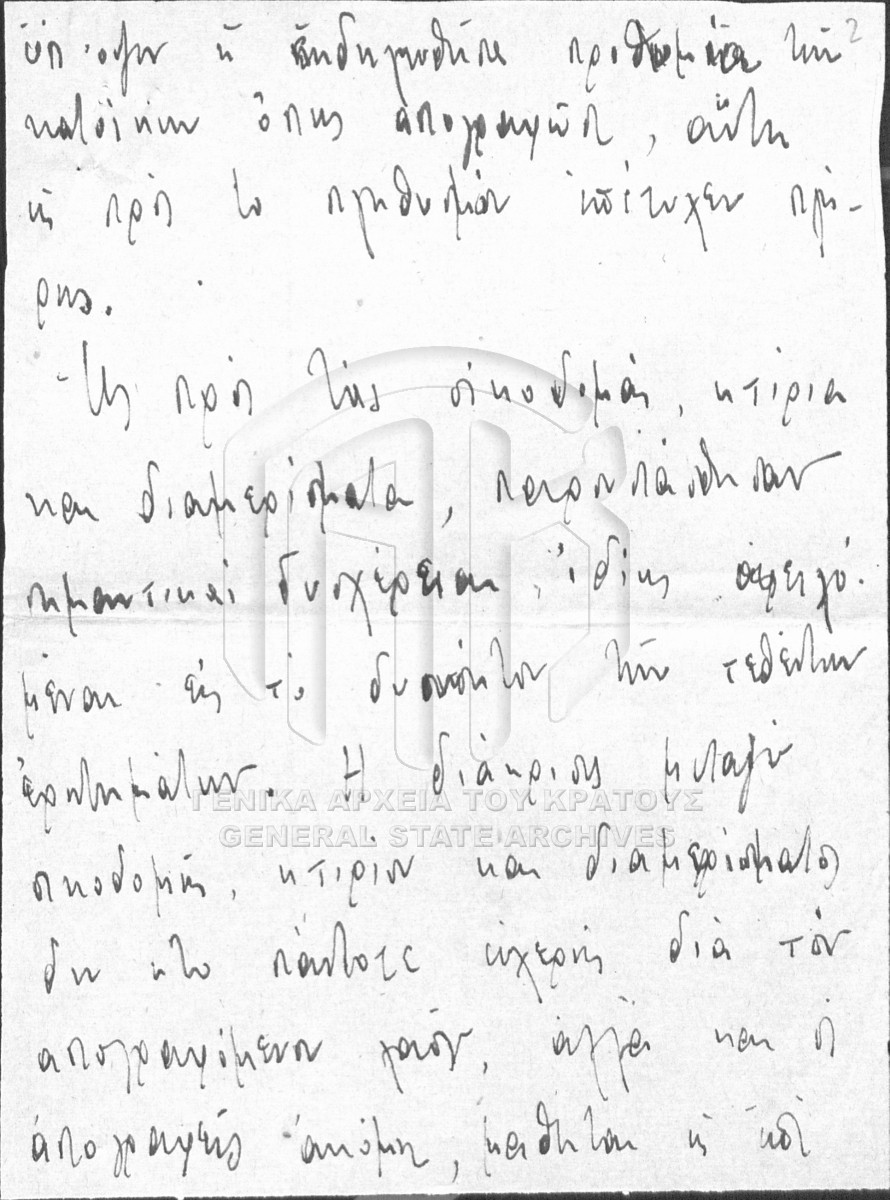 2
ὑπ' ὄψιν ἡ ἐκδηλωθεῖσα προθυμία τῶν
κατοίκων ὅπως ἀπογραφῶσι, αὕτη
ὡς πρὸς τὸ πληθυσμὸν ἐπέτυχεν πλή-
ρως.
Ὡς πρὸς τὰς οἰκοδομάς, κτίρια
και διαμερίσματα, παρουσιάσθησαν
σημαντικαὶ δυσχέρειαι, ἰδίως ὀφειλό-
μεναι εἰς τὸ δυσνόητον τῶν τεθέντων
ἐρωτημάτων. Ἡ διάκρισις μεταξὺ
οικοδομῆς, κτιρίου και διαμερίσματος
δεν ἦτο πάντοτε εὐχερής διὰ τὸν
ἀπογραφόμενον λαόν, ἀλλὰ και οἱ
ἀπογραφεῖς ἀκόμη, μαθηταὶ ὡς ἐπὶ
ΓΕΝΙΚΑ ΑΡΧΕΙΑ ΤΟΥ ΚΡΑΤΟΥΣ
GENERAL STATE ARCHIVES